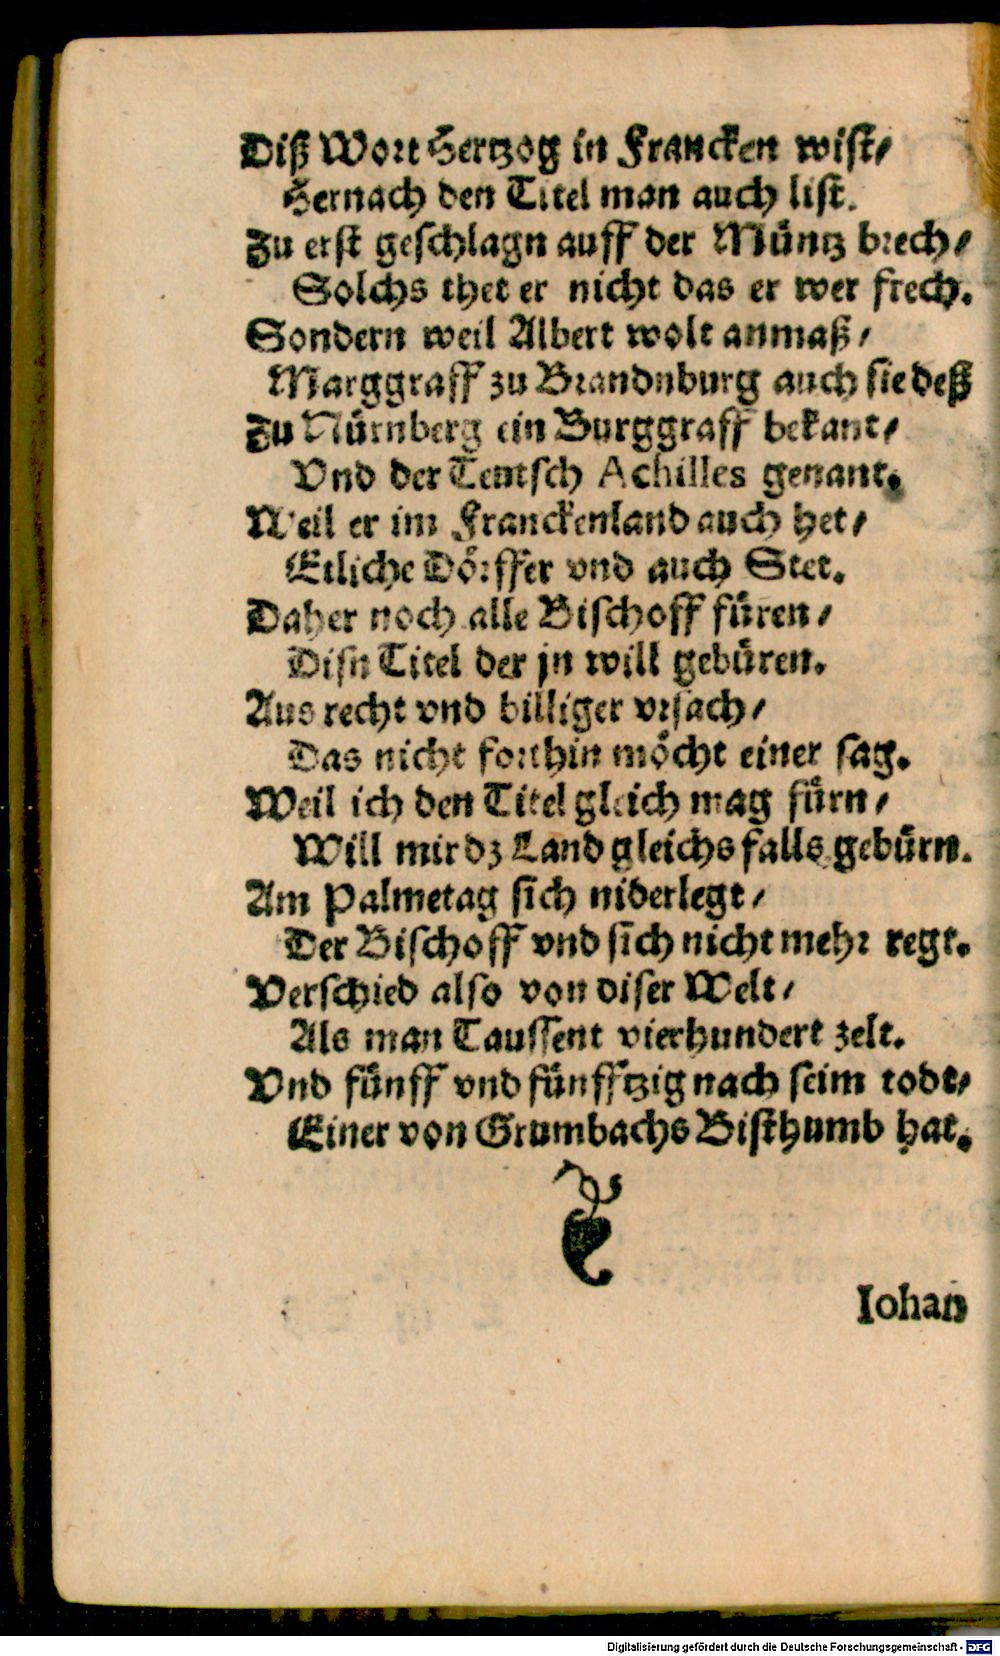 Diß Wort Hertzog in Francken wist/
Hernach den Titel man auch list.
Zu erst geschlagn auff der Müntz brech/
Solchs thet er nicht das er wer frech.
Sondern weil Albert wolt anmaß/
Marggraff zu Brandnburg auch sie deß
Zu Nürnberg ein Burggraff bekant/
Vnd der Teutsch Achilles genant.
Weil er im Franckenland auch het/
Etliche Dörffer vnd auch Stet.
Daher noch alle Bischoff füren/
Disn Titel der jn will gebüren.
Aus recht vnd billiger vrsach/
Das nicht forthin möcht einer sag.
Weil ich den Titel gleich mag fürn/
Will mir dz Land gleichs falls gebürn.
Am Palmetag sich niderlegt/
Der Bischoff vnd sich nicht mehr regt.
Verschied also von diser Welt/
Als man Taussent vierhundert zelt.
Vnd fünff vnd fünfftzig nach seim todt/
Einer von Grumbachs Bisthumb hat.
Iohan
Digitalisierung gefördert durch die Deutsche Forschungsgemeinschaft - DFG